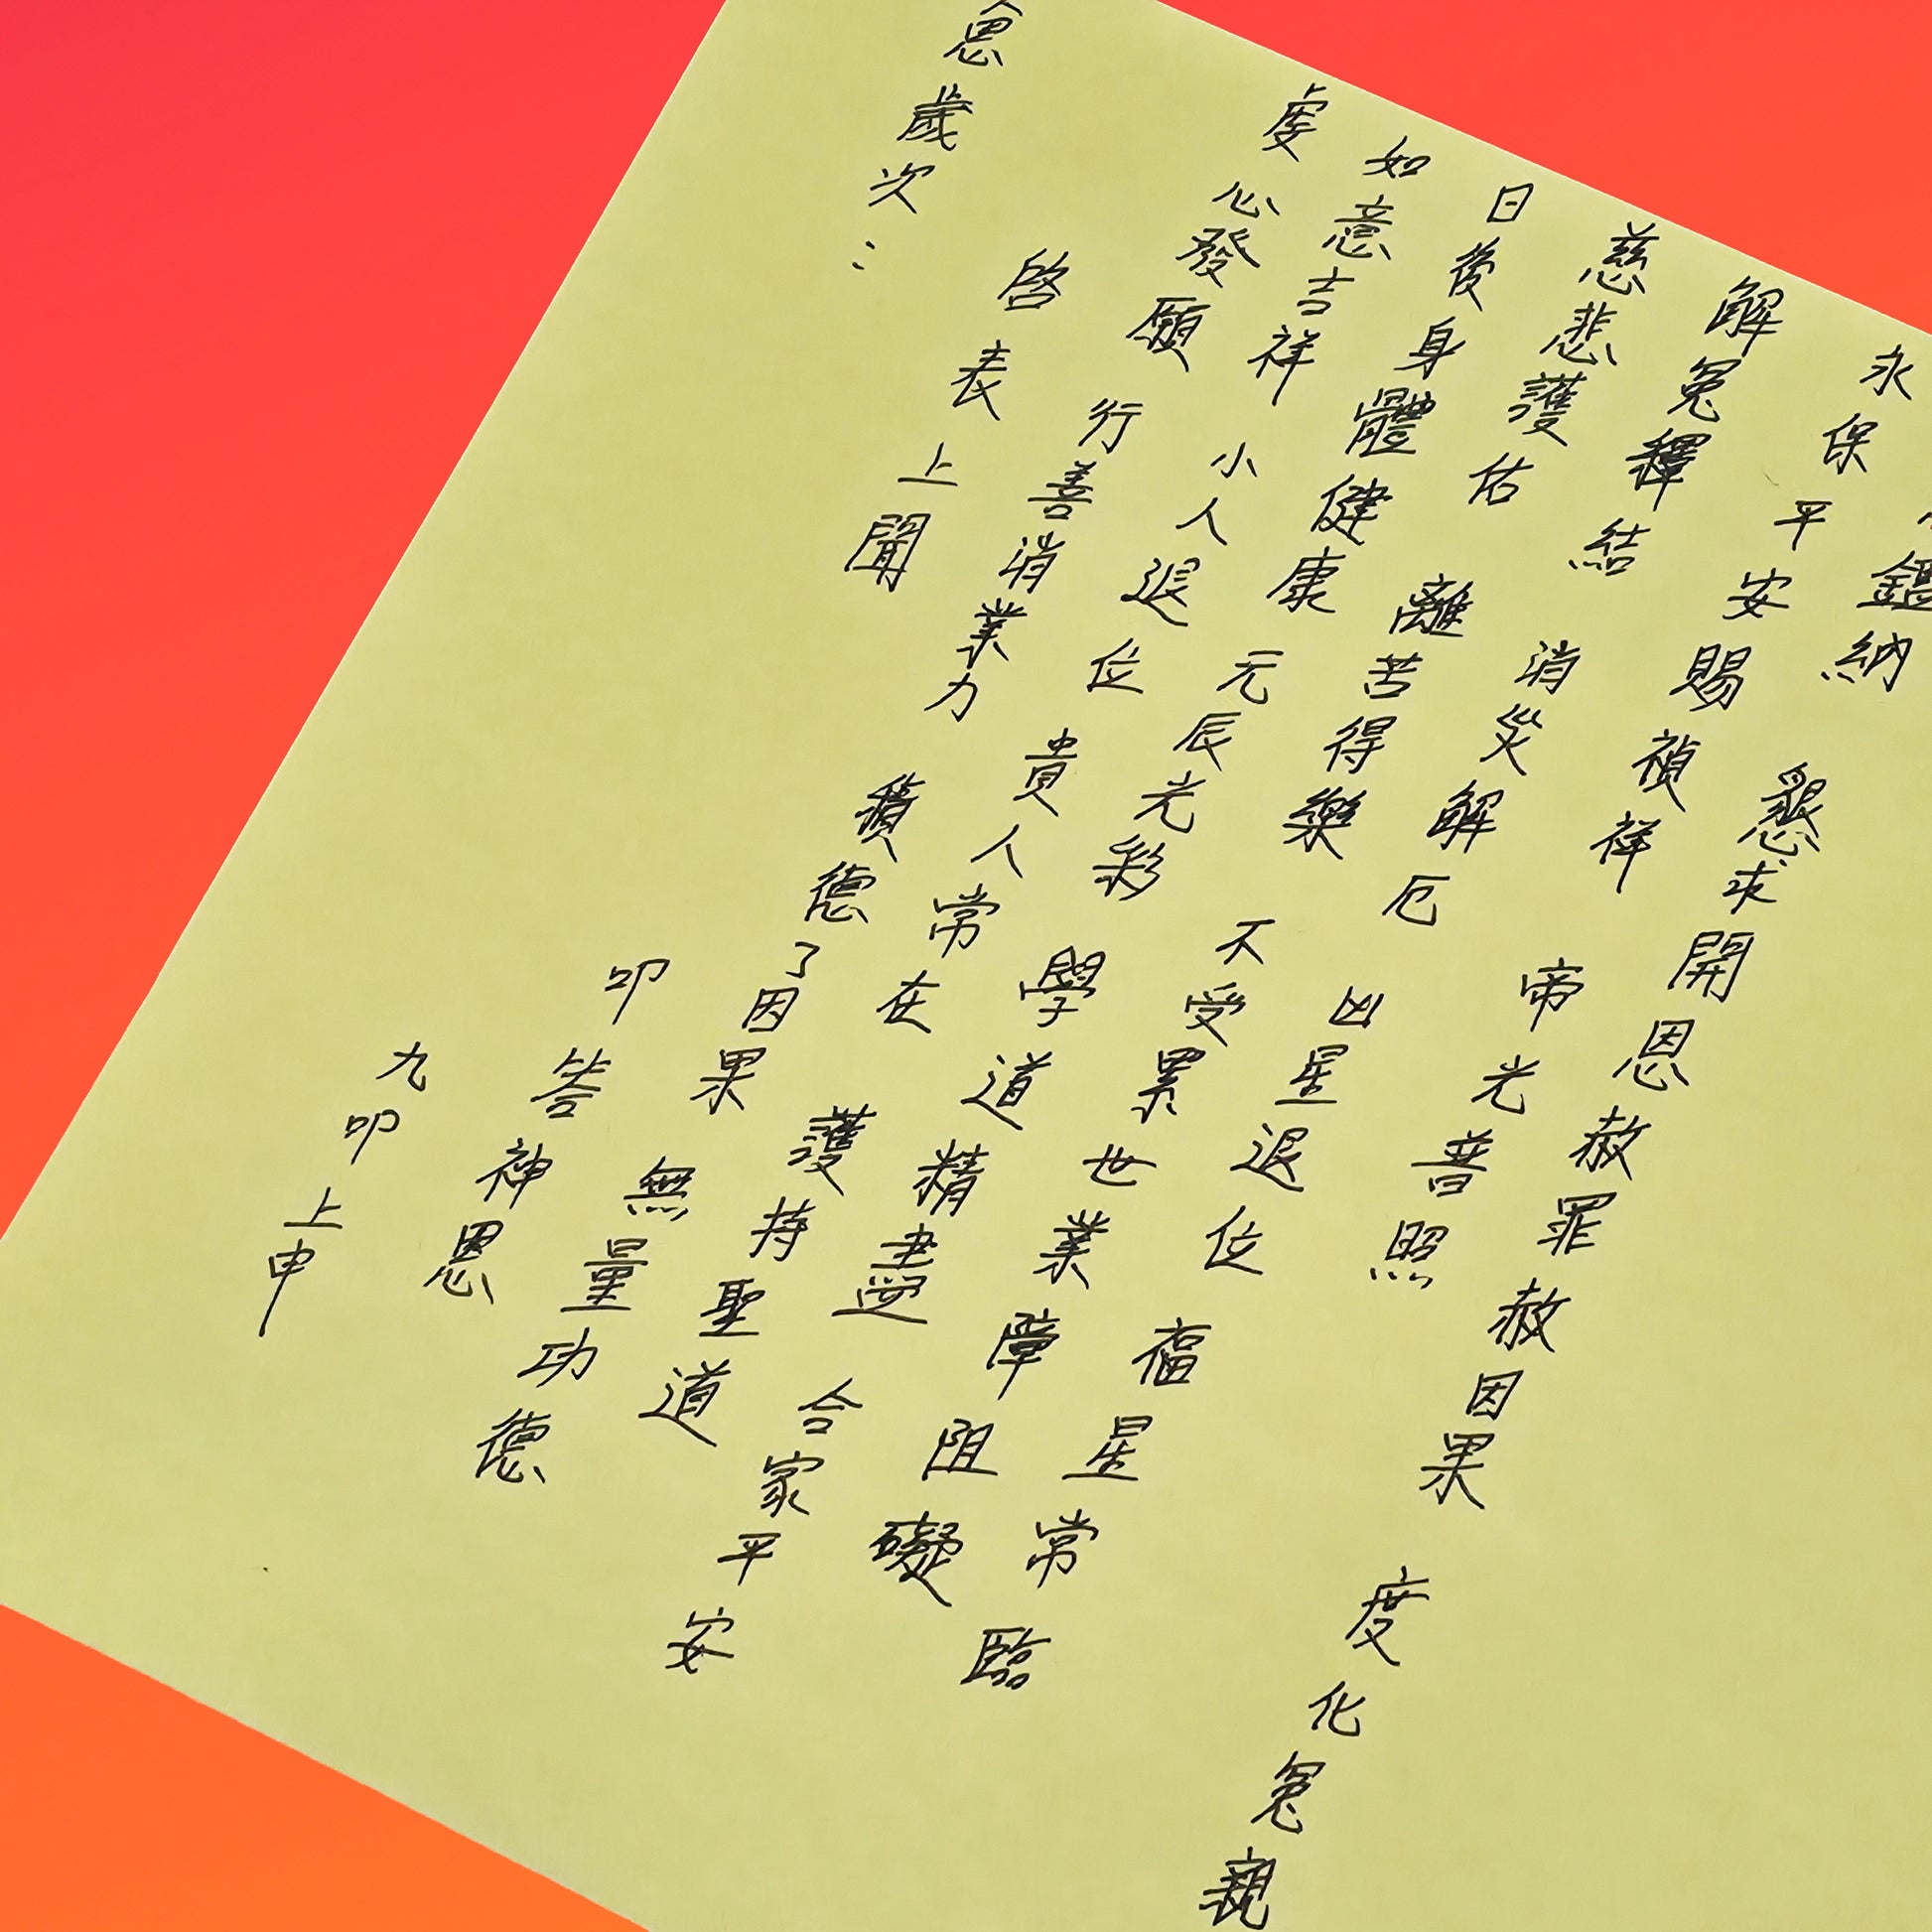 鑑納 懇求開恩赦罪赦因果 度化冤親
永保平安賜禎祥 帝光普照
解冤釋結 消災解厄 凶星退位 福星常臨
慈悲護佑 離苦得樂 不受累世業障阻礙
日後身體健康 元辰光彩 學道精盡 合家平安
如意吉祥 小人退位 貴人常在 護持聖道
虔心發願 行善消業力 積德了因果 無量功德
啓表上聞 叩答神恩
恩歲次： 九叩上申